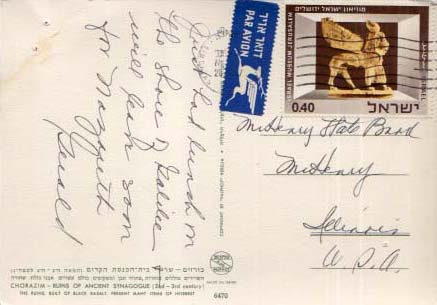 Just had lunch on
the shore of Galilee
will leave soon
for Nazareth
Gerald
דואר אויר
PAR AVION
מוזיאון ישראל ירושלים
ISRAEL MUSEUM JERUSALEM
0.40
ישראל
McHenry State Bank
McHenry
Illinois
U.S.A.
כורזים – שרידי בית-הכנסת הקדום
CHORAZIM - RUINS OF ANCIENT SYNAGOGUE (2nd-3rd century)
THE RUINS, BUILT OF BLACK BASALT, PRESENT MANY ITEMS OF INTEREST
6470